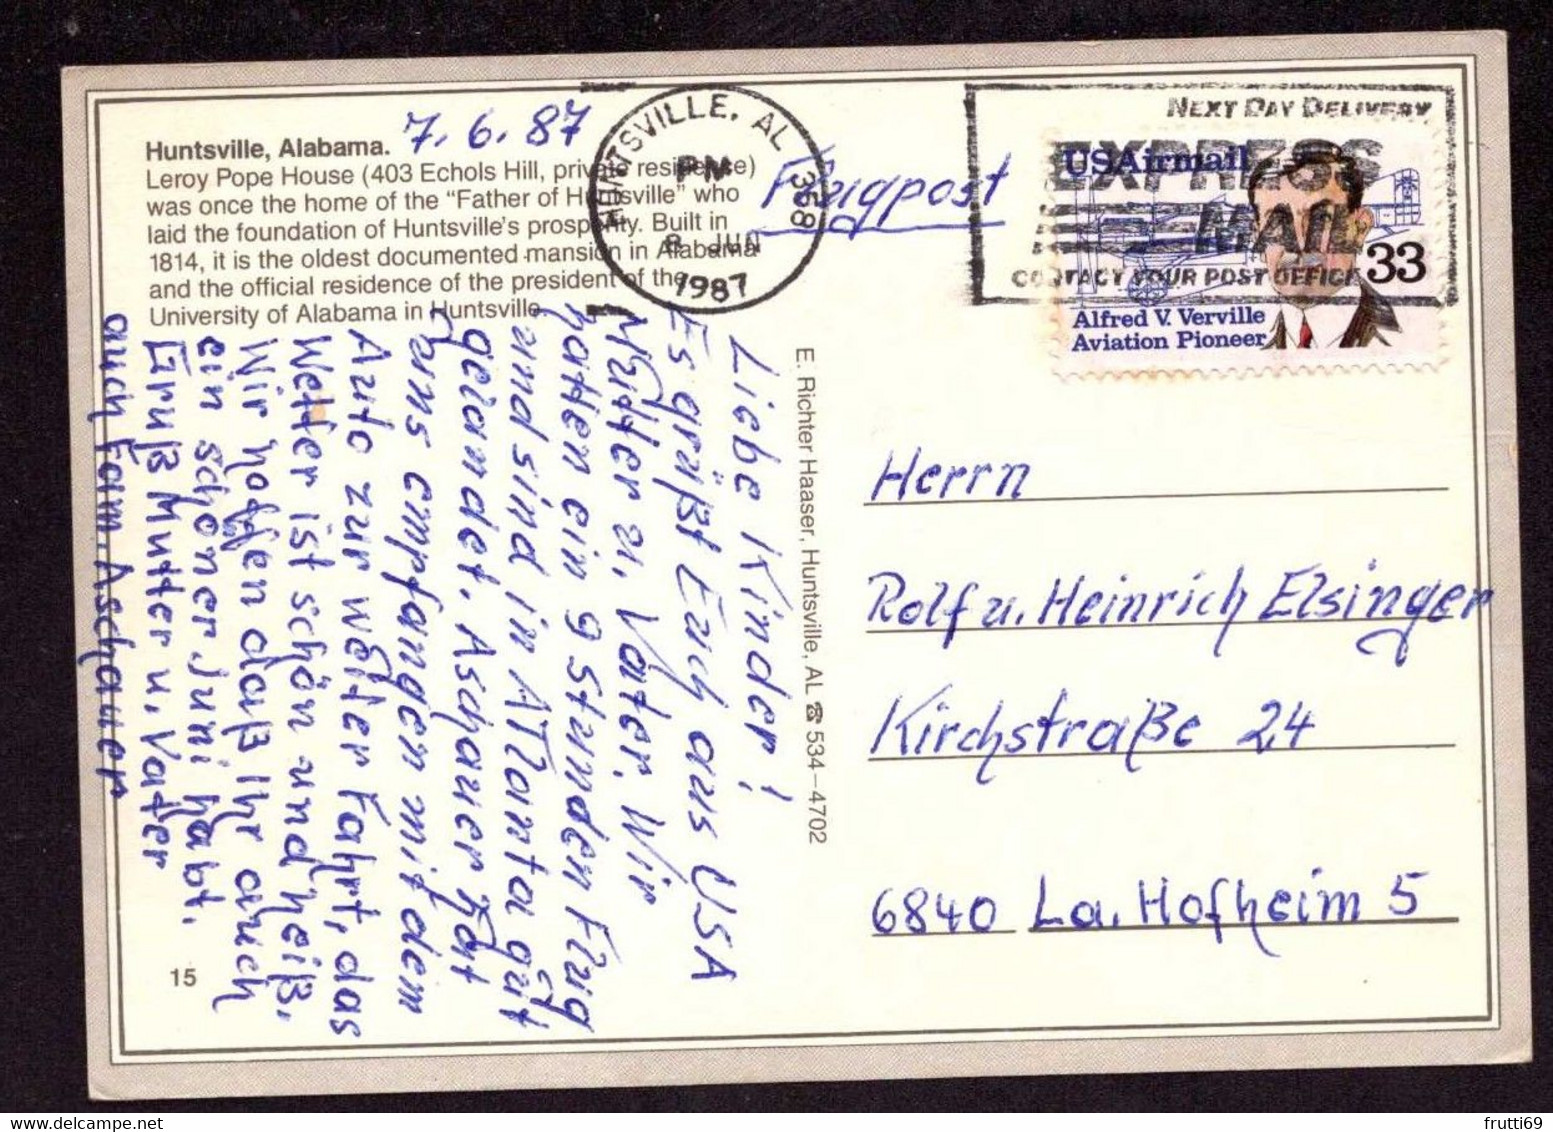 Huntsville, Alabama.
7.6.87
Leroy Pope House (403 Echols Hill, private residence)
was once the home of the "Father of Huntsville" who
laid the foundation of Huntsville's prosperity. Built in
1814, it is the oldest documented mansion in Alabama
and the official residence of the president of the
University of Alabama in Huntsville.
HUNTSVILLE, AL 358
PM
8 JUN
1987
Flugpost
NEXT DAY DELIVERY
EXPRESS
MAIL
CONTACT YOUR POST OFFICE
USAirmail
33
Alfred V. Verville
Aviation Pioneer
Liebe Kinder!
Es grüßt Euch aus USA
Mutter u. Vater. Wir
hatten ein 9 Stunden Flug
und sind in ATlanta gut
gelandet. Aschauer hat
uns empfangen mit dem
Auto zur weiter Fahrt, das
Wetter ist schön und heiß.
Wir hoffen daß Ihr auch
ein schöner Juni habt.
Gruß Mutter u. Vater
auch Fam. Aschauer
E. Richter Haaser, Huntsville, AL ☎ 534–4702
Herrn
Rolf u. Heinrich Elsinger
Kirchstraße 24
6840 La. Hofheim 5
15
frutti69